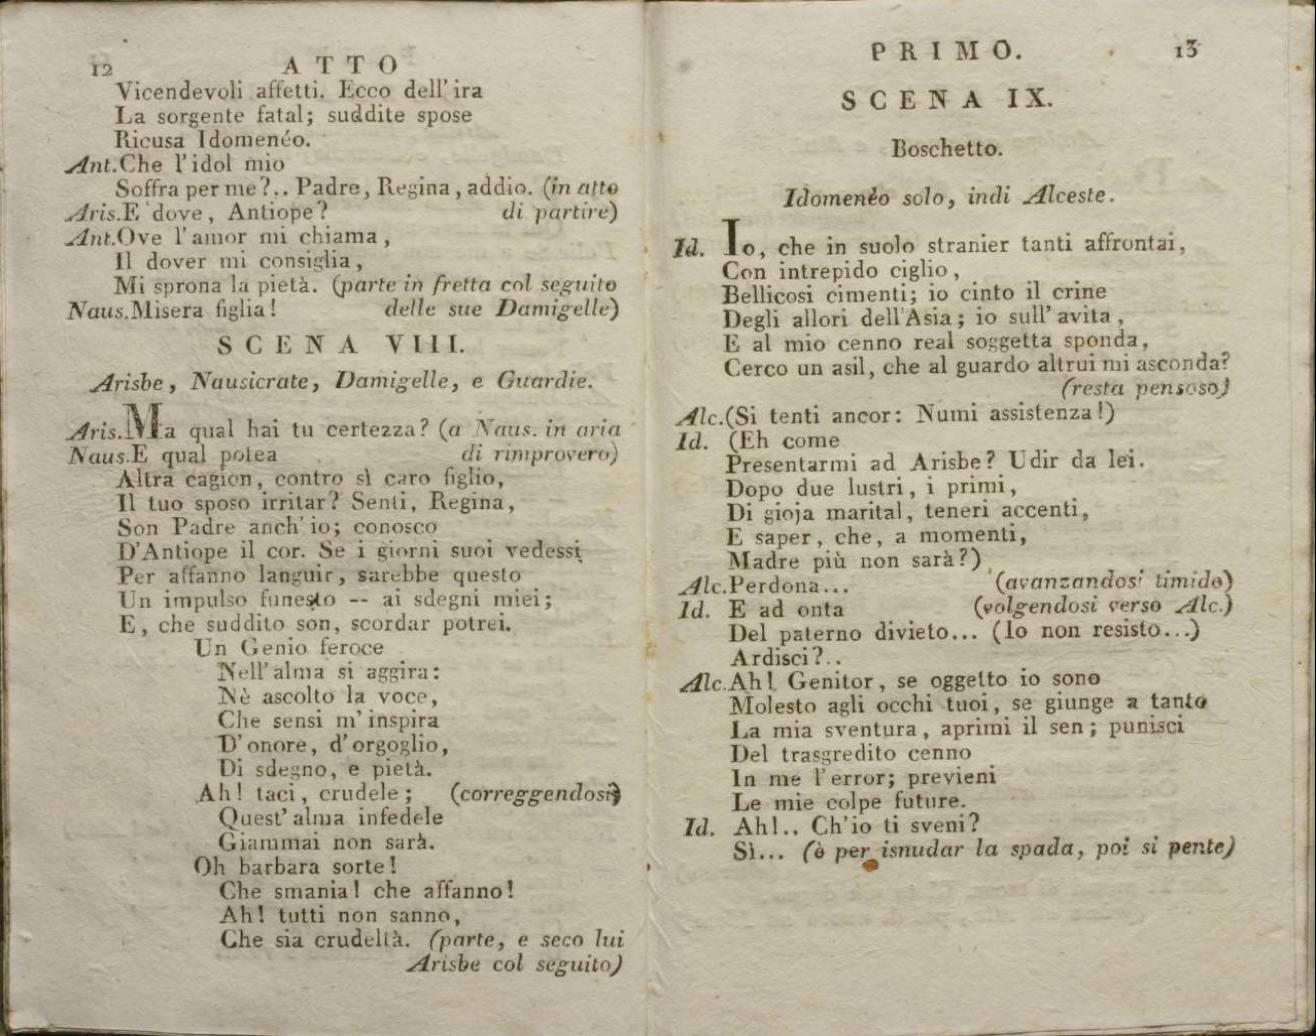 12 ATTO
Vicendevoli affetti. Ecco dell' ira
La sorgente fatal; suddite spose
Ricusa Idomenéo.
Ant. Che l'idol mio
Soffra per me?.. Padre, Regina, addio. (in atto
Aris. E dove, Antiope? di partire)
Ant. Ove l'amor mi chiama,
Il dover mi consiglia,
Mi sprona la pietà. (parte in fretta col seguito
Naus. Misera figlia! delle sue Damigelle)
SCENA VIII.
Arisbe, Nausicrate, Damigelle, e Guardie.
Aris. Ma qual hai tu certezza? (a Naus. in aria
Naus. E qual potea di rimprovero)
Altra cagion, contro sì caro figlio,
Il tuo sposo irritar? Senti, Regina,
Son Padre anch' io; conosco
D'Antiope il cor. Se i giorni suoi vedessi
Per affanno languir, sarebbe questo
Un impulso funesto -- ai sdegni miei;
E, che suddito son, scordar potrei.
Un Genio feroce
Nell' alma si aggira:
Nè ascolto la voce,
Che sensi m' inspira
D' onore, d' orgoglio,
Di sdegno, e pietà.
Ah! taci, crudele; (correggendosi)
Quest' alma infedele
Giammai non sarà.
Oh barbara sorte!
Che smania! che affanno!
Ah! tutti non sanno,
Che sia crudeltà. (parte, e seco lui
Arisbe col seguito)
PRIMO. 13
SCENA IX.
Boschetto.
Idomenèo solo, indi Alceste.
Id. Io, che in suolo stranier tanti affrontai,
Con intrepido ciglio,
Bellicosi cimenti; io cinto il crine
Degli allori dell'Asia; io sull' avita,
E al mio cenno real soggetta sponda,
Cerco un asil, che al guardo altrui mi asconda?
(resta pensoso)
Alc. (Si tenti ancor: Numi assistenza!)
Id. (Eh come
Presentarmi ad Arisbe? Udir da lei.
Dopo due lustri, i primi,
Di gioja marital, teneri accenti,
E saper, che, a momenti,
Madre più non sarà?)
Alc. Perdona... (avanzandosi timido)
Id. E ad onta (volgendosi verso Alc.)
Del paterno divieto... (Io non resisto...)
Ardisci?..
Alc. Ah! Genitor, se oggetto io sono
Molesto agli occhi tuoi, se giunge a tanto
La mia sventura, aprimi il sen; punisci
Del trasgredito cenno
In me l'error; previeni
Le mie colpe future.
Id. Ah!.. Ch'io ti sveni?
Sì... (è per isnudar la spada, poi si pente)